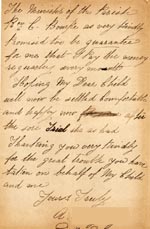 The Minister of the Parish
Revd C. Bowke as very kindly
promised to be guarantee
for me that I Pay the money
regularly every month
Hoping My Dear Child
will now be settled Comfortable
and happy now after
the sore Trial she as had
Thanking you very kindly
for the great trouble you have
taken on behalf of My Child
and me
Yours Truly